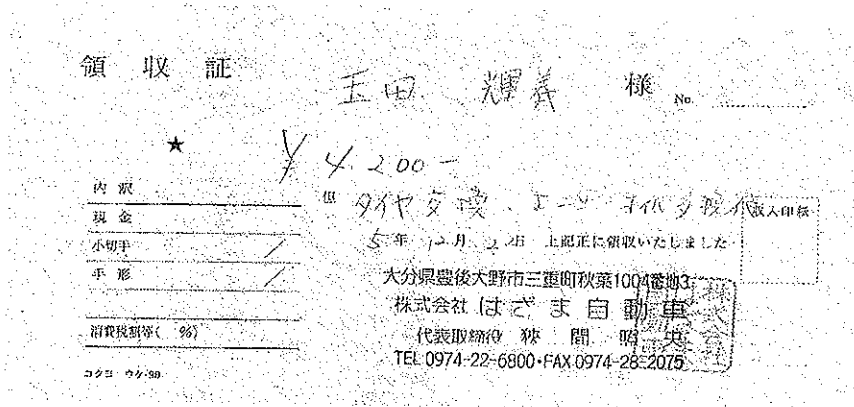 領収証
玉田 輝義 様 No.
★ ¥4,200-
内訳
現金
小切手 /
手形 /
消費税額等( %)
コクヨ ウケ-98
但 タイヤ交換、エンジンオイル交換代
収入印紙
5年12月22日 上記正に領収いたしました
大分県豊後大野市三重町秋葉1004番地3
株式会社 はざま自動車
代表取締役 狭間 昭央
TEL 0974-22-6800・FAX 0974-28-2075